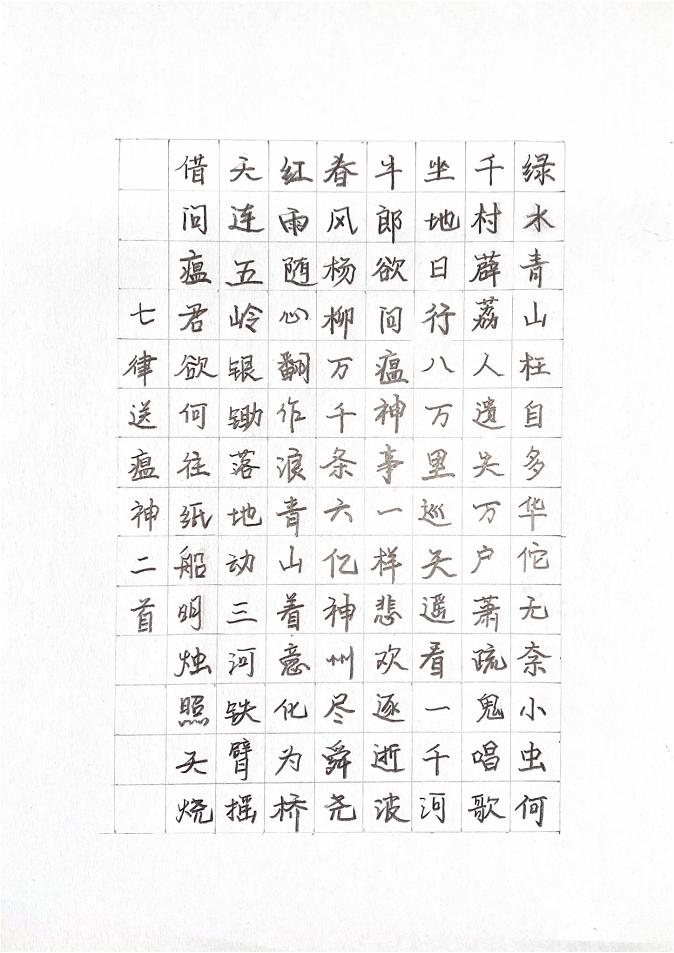 绿水青山枉自多华佗无奈小虫何
千村薜荔人遗失万户萧疏鬼唱歌
坐地日行八万里巡天遥看一千河
牛郎欲问瘟神事一样悲欢逐逝波
春风杨柳万千条六亿神州尽舜尧
红雨随心翻作浪青山着意化为桥
天连五岭银锄落地动三河铁臂摇
借问瘟君欲何往纸船明烛照天烧
七律送瘟神二首